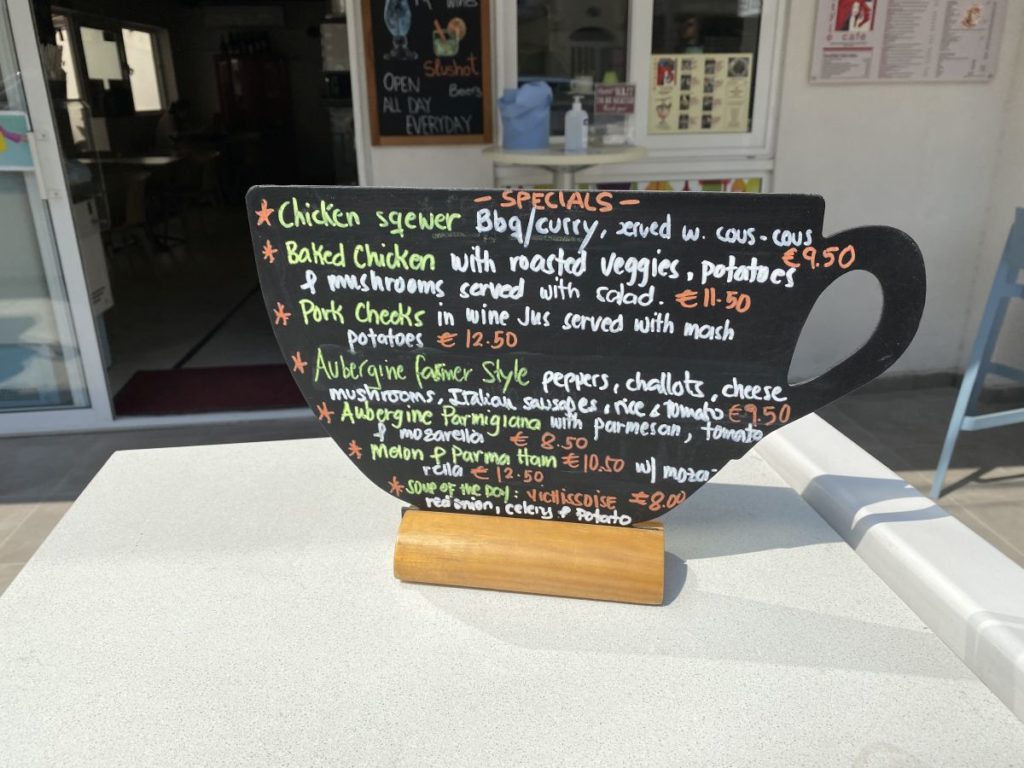 Wine
Slushot
OPEN Beers
ALL DAY
EVERYDAY
cafe
- SPECIALS -
* Chicken sqewer Bbq/curry, served w. cous-cous
€9.50
* Baked Chicken with roasted veggies, potatoes
& mushrooms served with salad. €11.50
* Pork Cheeks in wine Jus served with mash
potatoes €12.50
* Aubergine farmer Style peppers, challots, cheese
mushrooms, Italian sausages, rice & tomato €9.50
* Aubergine Parmigiana with parmesan, tomato
& mozarella €8.50
* Melon & Parma Ham €10.50 w/ moza-
rella €12.50
* SOUP OF THE DAY: VICHISSOISE €8.00
red onion, celery & potato